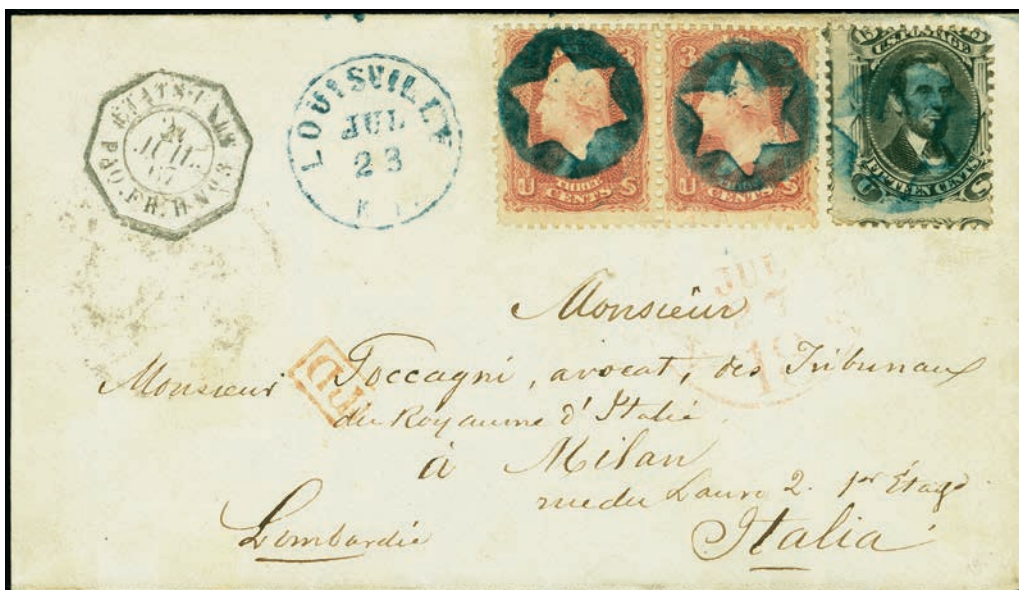 ETATS-UNIS
JUIL.
67
PAQ. FR. H Nº 3
LOUISVILLE
JUL
23
KY.
3 3
U THREE CENTS S
3
U THREE CENTS S
U.S. POSTAGE
FIFTEEN CENTS
U S
JUL
18
PD
Monsieur
Monsieur Toccagni, avocat, des Tribunaux
du Royaume d'Italie
à Milan
rue du Lauro 2. 1er Étage
Lombardie
Italia